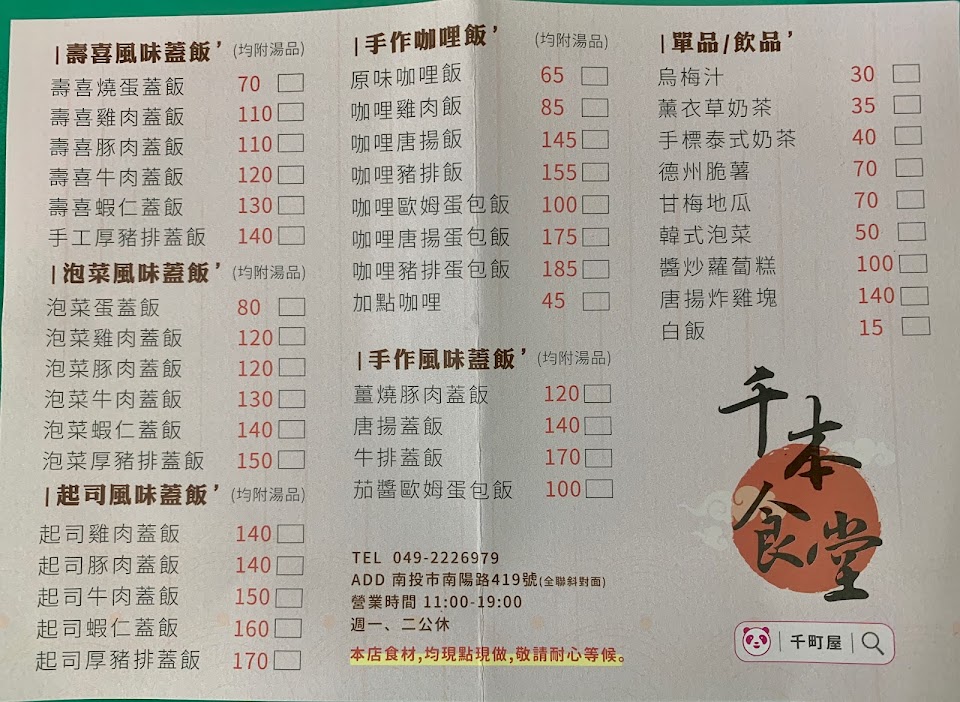 壽喜風味蓋飯’ (均附湯品)
壽喜燒蛋蓋飯 70
壽喜雞肉蓋飯 110
壽喜豚肉蓋飯 110
壽喜牛肉蓋飯 120
壽喜蝦仁蓋飯 130
手工厚豬排蓋飯 140
泡菜風味蓋飯’ (均附湯品)
泡菜蛋蓋飯 80
泡菜雞肉蓋飯 120
泡菜豚肉蓋飯 120
泡菜牛肉蓋飯 130
泡菜蝦仁蓋飯 140
泡菜厚豬排蓋飯 150
起司風味蓋飯’ (均附湯品)
起司雞肉蓋飯 140
起司豚肉蓋飯 140
起司牛肉蓋飯 150
起司蝦仁蓋飯 160
起司厚豬排蓋飯 170
手作咖哩飯’ (均附湯品)
原味咖哩飯 65
咖哩雞肉飯 85
咖哩唐揚飯 145
咖哩豬排飯 155
咖哩歐姆蛋包飯 100
咖哩唐揚蛋包飯 175
咖哩豬排蛋包飯 185
加點咖哩 45
手作風味蓋飯’ (均附湯品)
薑燒豚肉蓋飯 120
唐揚蓋飯 140
牛排蓋飯 170
茄醬歐姆蛋包飯 100
TEL 049-2226979
ADD 南投市南陽路419號(全聯斜對面)
營業時間 11:00-19:00
週一、二公休
本店食材,均現點現做,敬請耐心等候。
單品/飲品’
烏梅汁 30
薰衣草奶茶 35
手標泰式奶茶 40
德州脆薯 70
甘梅地瓜 70
韓式泡菜 50
醬炒蘿蔔糕 100
唐揚炸雞塊 140
白飯 15
千本食堂
千町屋